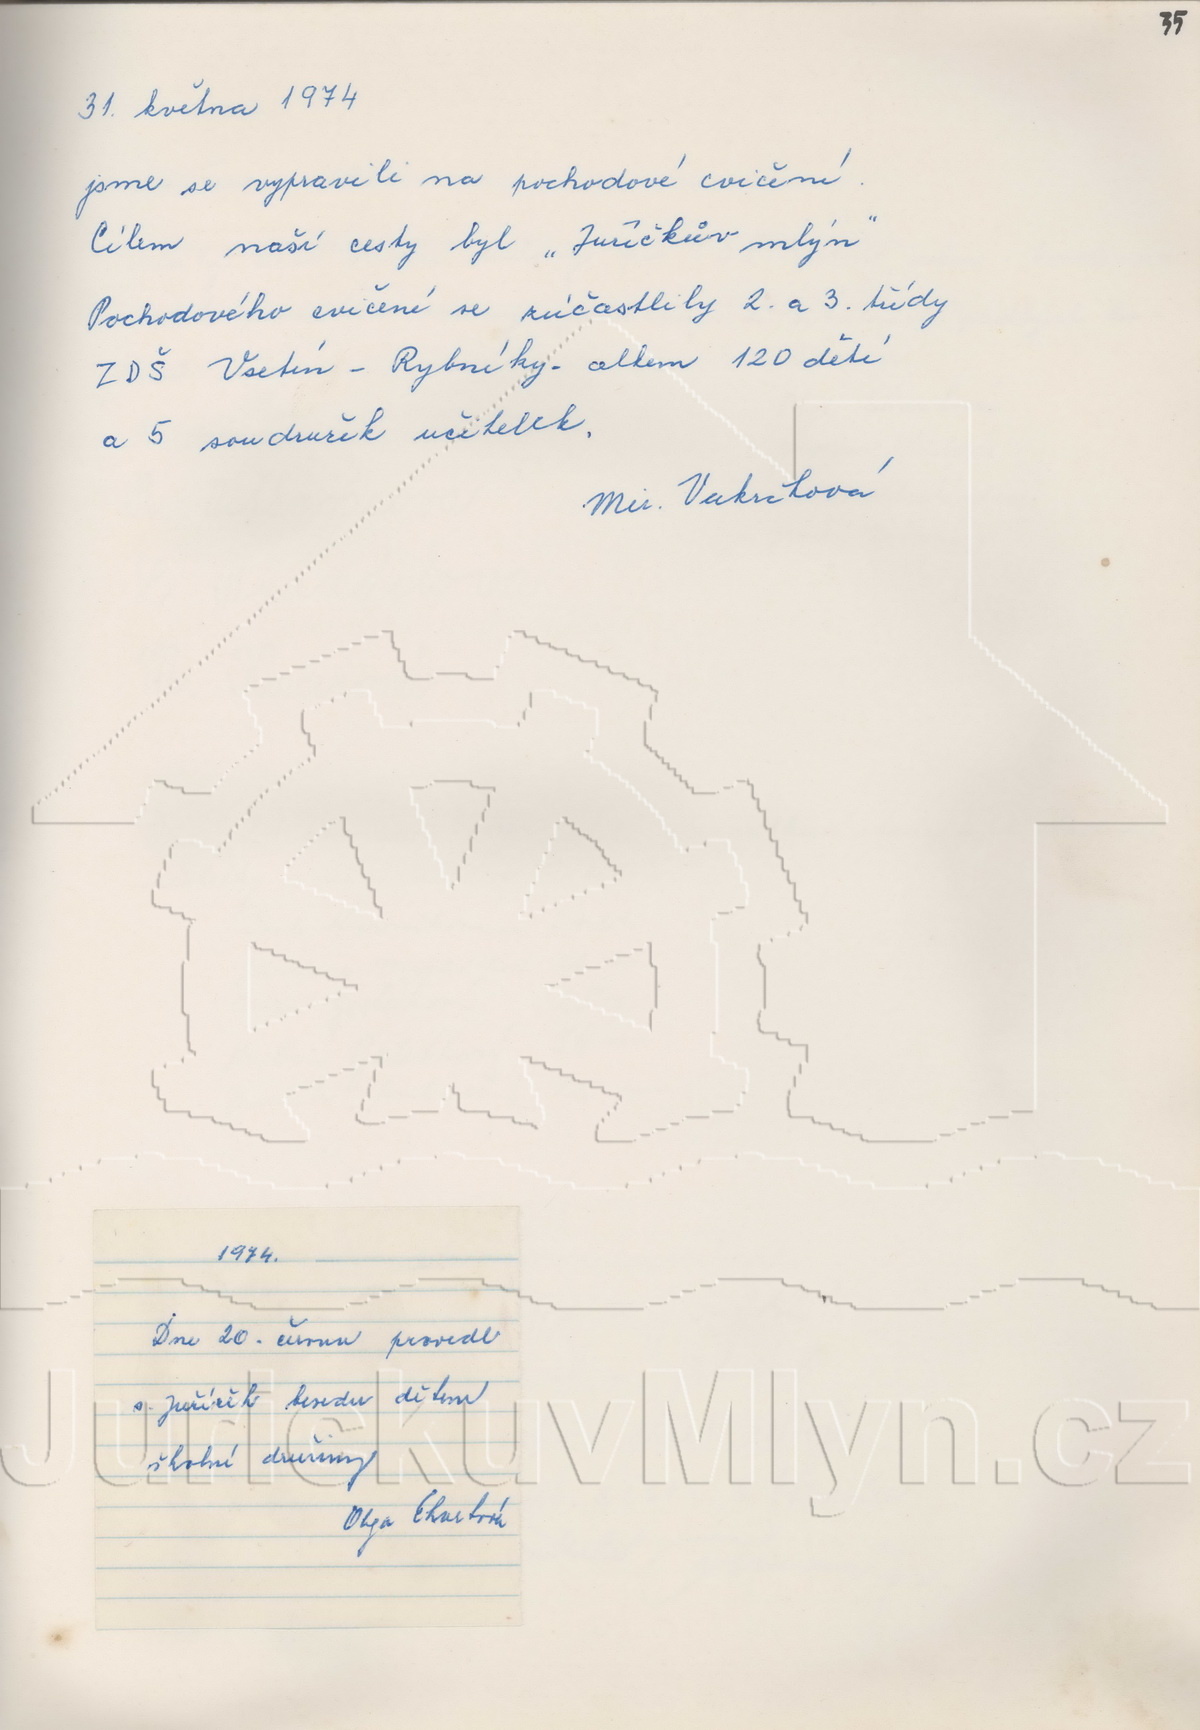 35
31. května 1974
jsme se vypravili na pochodové cvičení.
Cílem naší cesty byl „Juříčkův mlýn"
Pochodového cvičení se zúčastlily 2. a 3. třídy
ZDŠ Vsetín - Rybníky - celkem 120 dětí
a 5 soudružek učitelek.
Mir.
1974.
Dne 20. června provedl
s. Juříček besedu dětem
školní družiny
Olga
JurickuvMlyn.cz